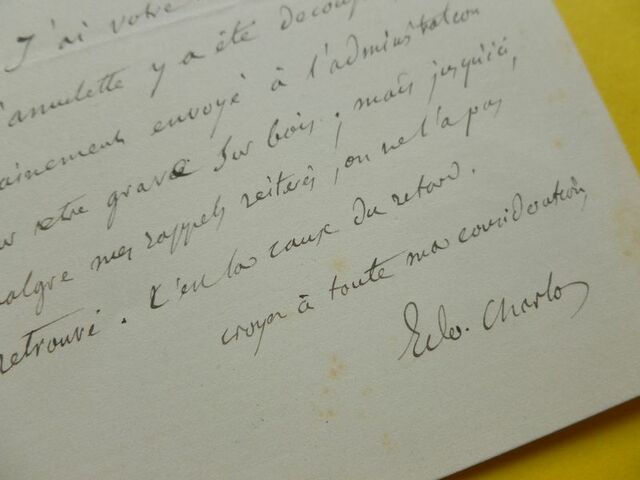 J'ai votre
l'amulette y a été découp
ainement envoyé à l'administration
ur être gravé sur bois ; mais jusqu'ici,
malgré mes rappels réitérés, on ne l'a pas
retrouvé. C'est la cause du retard.
croyez à toute ma considération,
Edo. Charton